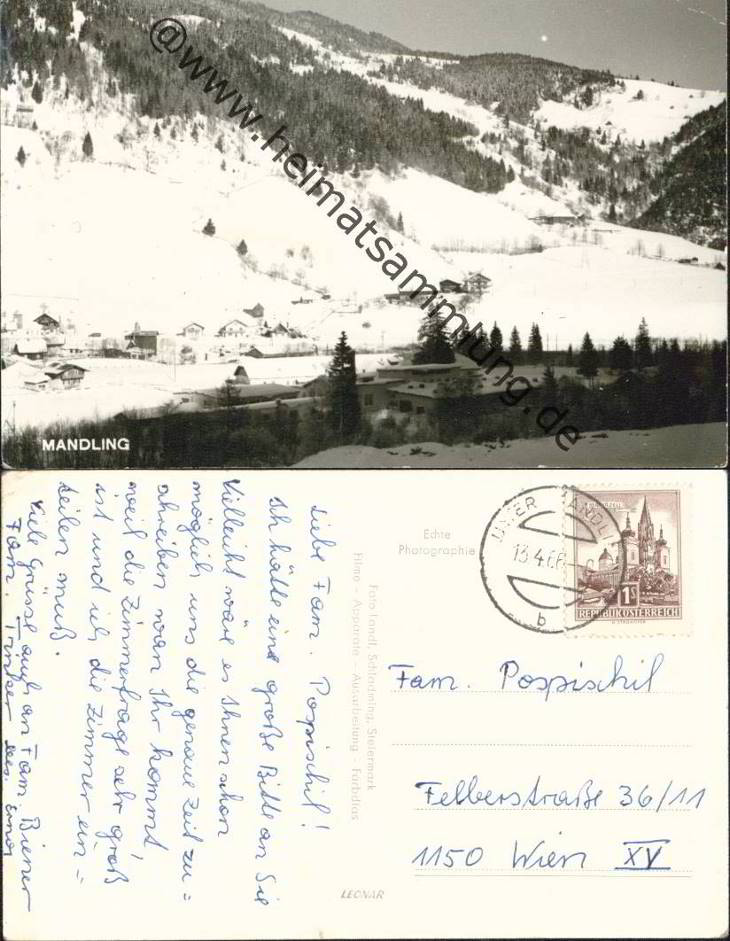 @www.heimatsammlung.de
MANDLING
Liebe Fam. Pospischil!
Ich hätte eine große Bitte an Sie
Vielleicht wäre es Ihnen schon
möglich uns die genaue Zeit zu=
schreiben wan Ihr kommt,
weil die Zimmerfrage sehr groß
ist und ich die Zimmer ein=
teilen muß.
Viele Grüsse auch an Fam. Biener
Fam.
Echte
Photographie
Foto Landl, Schladming, Steiermark
Filme - Apparate - Ausarbeitung - Farbdias
LEONAR
UNTER MANDLING
13.4.66
b
1S
REPUBLIK ÖSTERREICH
Fam. Pospischil
Felberstraße 36/11
1150 Wien XV